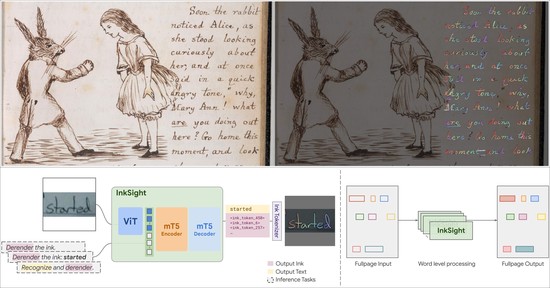 Soon the rabbit
noticed Alice, as
she stood looking
curiously about
her, and at once
said in a quick
angry tone, "why,
Mary Ann! what
are you doing out
here? Go home this
moment, and look
Soon the rabbit
noticed Alice, as
she stood looking
curiously about
her, and at once
said in a quick
angry tone, why,
Mary Ann! what
are you doing out
here? Go home this
moment, and look
started
Derender the ink.
Derender the ink: started
Recognize and derender.
InkSight
ViT
mT5
Encoder
mT5
Decoder
started
Ink Tokenizer
started
Output Ink
Output Text
Inference Tasks
Fullpage Input
InkSight
Word level processing
Fullpage Output